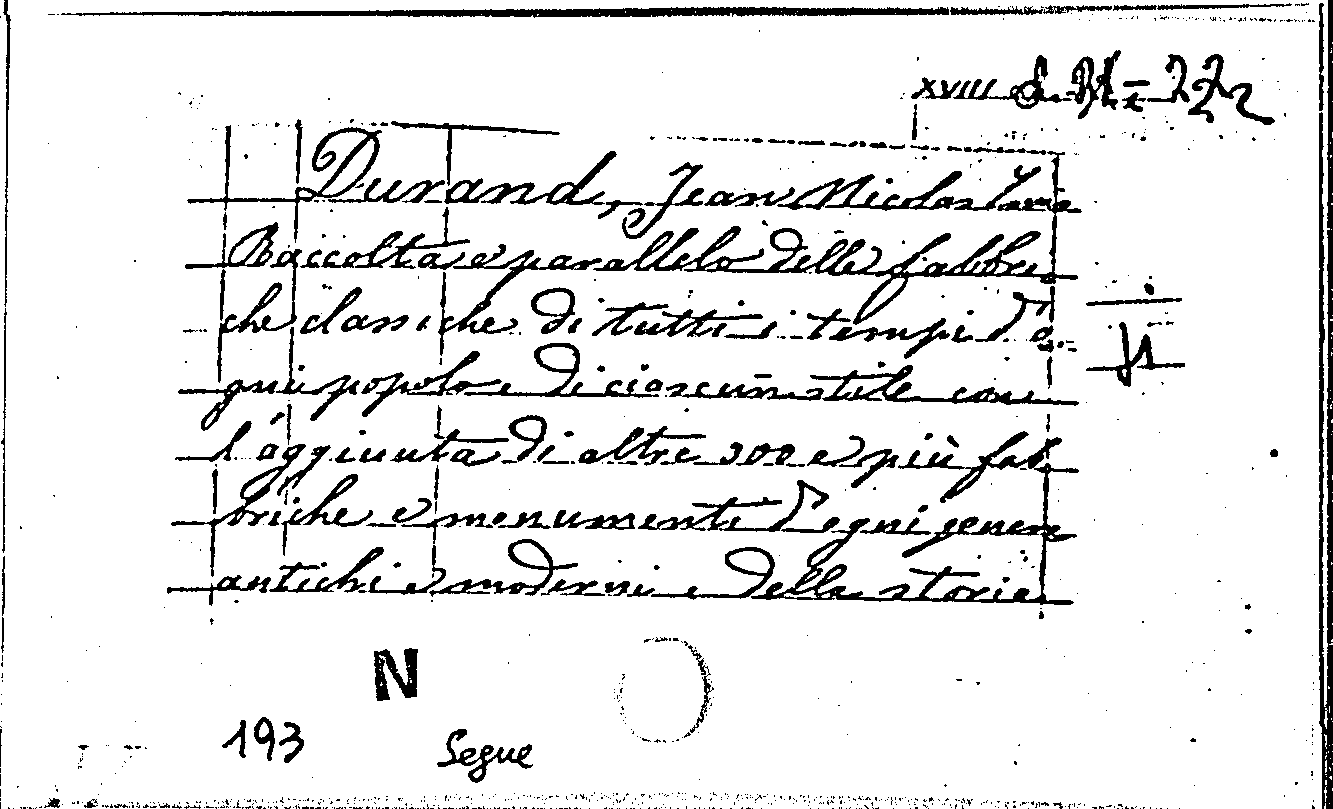 XVIII
Durand, Jean Nicolas Louis
Raccolta e parallelo delle fabbri
che classiche di tutti i tempi d'o
gni popolo e di ciascun stile con
l'aggiunta di altre 300 e più fab
briche e monumenti d'ogni genere
antichi e moderni e della storia
N
193 Segue